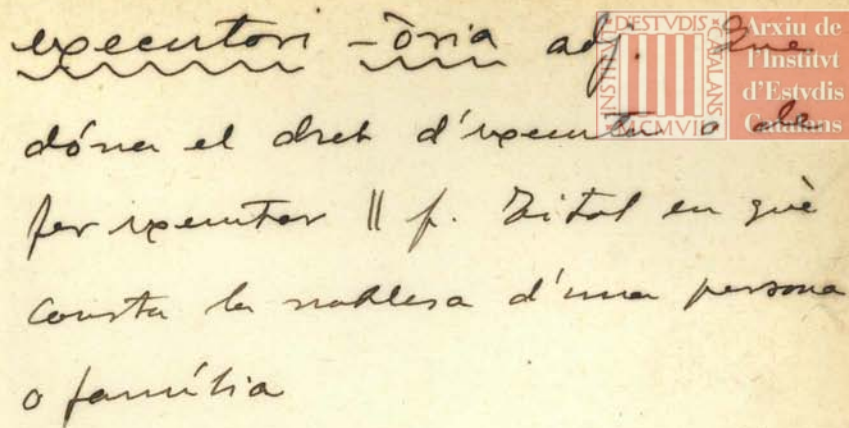 executori -òria adj. Que
dóna el dret d'executar o de
fer executar || f. Títol en què
consta la noblesa d'una persona
o família
INSTITVT D'ESTVDIS CATALANS
MCMVII
Arxiu de
l'Institvt
d'Estvdis
Catalans